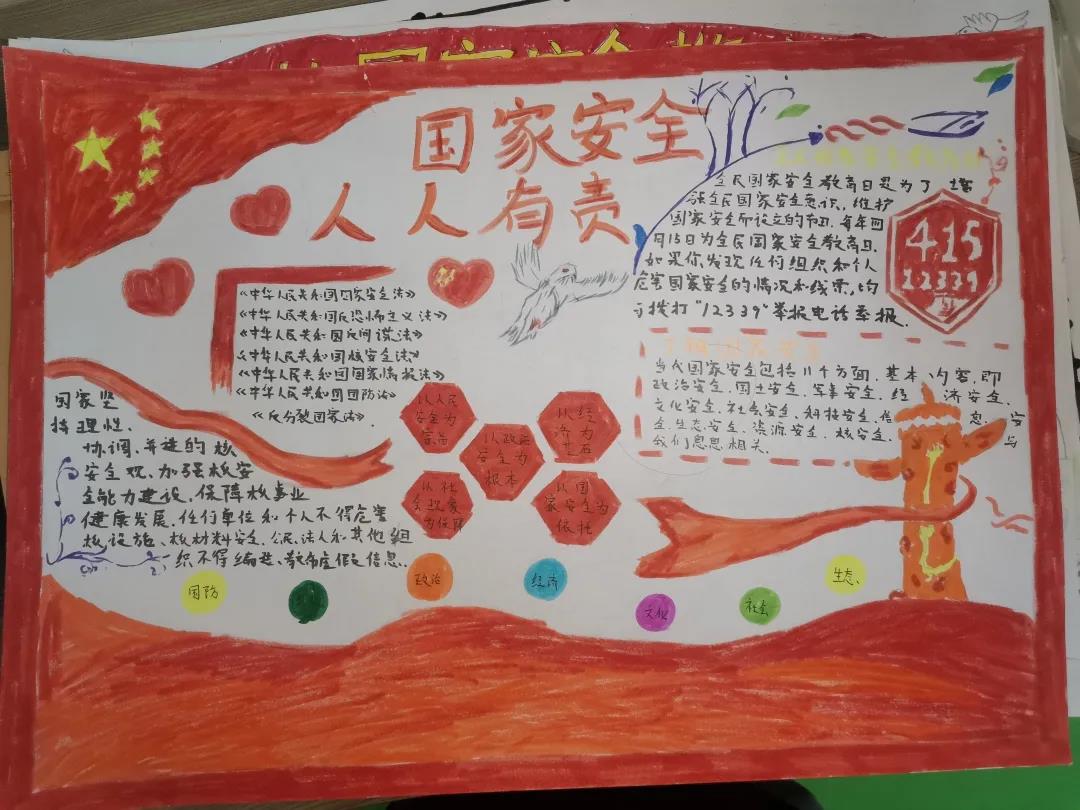 国家安全
人人有责
全民国家安全教育日是为了增
强全民国家安全意识，维护
国家安全而设立的节日．每年四
月15日为全民国家安全教育日．
如果你发现任何组织和个人
危害国家安全的情况和线索，均
可拨打"12339"举报电话举报．
415
12339
《中华人民共和国国家安全法》
《中华人民共和国反恐怖主义法》
《中华人民共和国反间谍法》
《中华人民共和国核安全法》
《中华人民共和国国家情报法》
《中华人民共和国国防法》
《反分裂国家法》．
当代国家安全包括11个方面．基本内容．即
政治安全．国土安全．军事安全．经济安全．
文化安全．社会安全．科技安全．信息安
全生态安全．资源安全．核安全．与
我们息息相关．
国家坚
持理性．
协调、并进的核
安全观．加强核安
全能力建设．保障核事业
健康发展．任何单位和个人不得危害
核设施、核材料安全．公民、法人和其他组
织不得编造、散布虚假信息．
以人民
安全为
宗旨
以政治
安全为
根本
以经
济为
基石
以社
会现象
为保障
以国
家安全为
依托
国防
政治
经济
文化
社会
生态